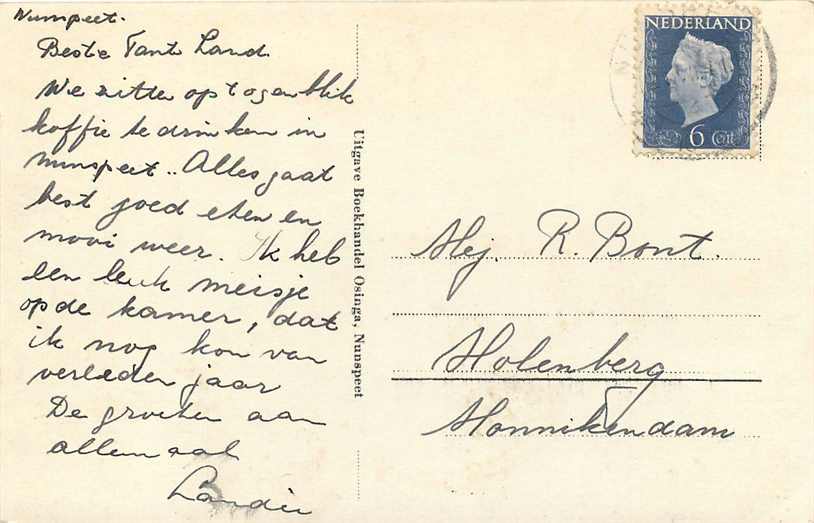 Nunspeet.
Beste Tant Land
We zitten op t ogenblik
koffie te drinken in
nunspeet.. Alles gaat
best goed eten en
mooi weer. Ik heb
een leuk meisje
op de kamer, dat
ik nog kon van
verleden jaar
De groeten aan
allemaal
Landie
Uitgave Boekhandel Osinga, Nunspeet
NEDERLAND
6 Cent
Mej. R. Bont.
Molenberg
Monnikendam